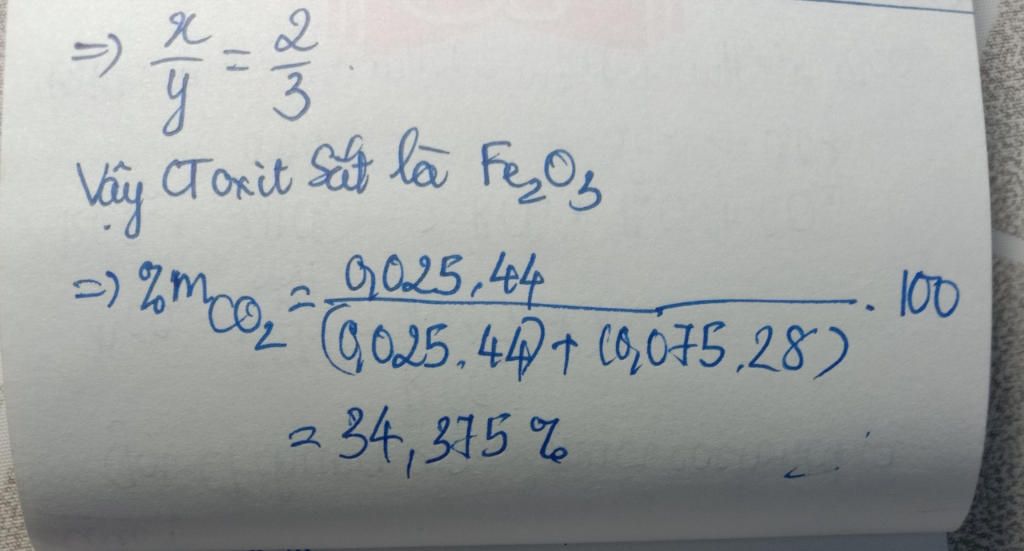 => x/y = 2/3.
Vậy CT oxit Sắt là Fe₂O₃
=> %m CO₂ = 0,025.44 / (0,025.44) + (0,075.28) . 100
= 34,375 %